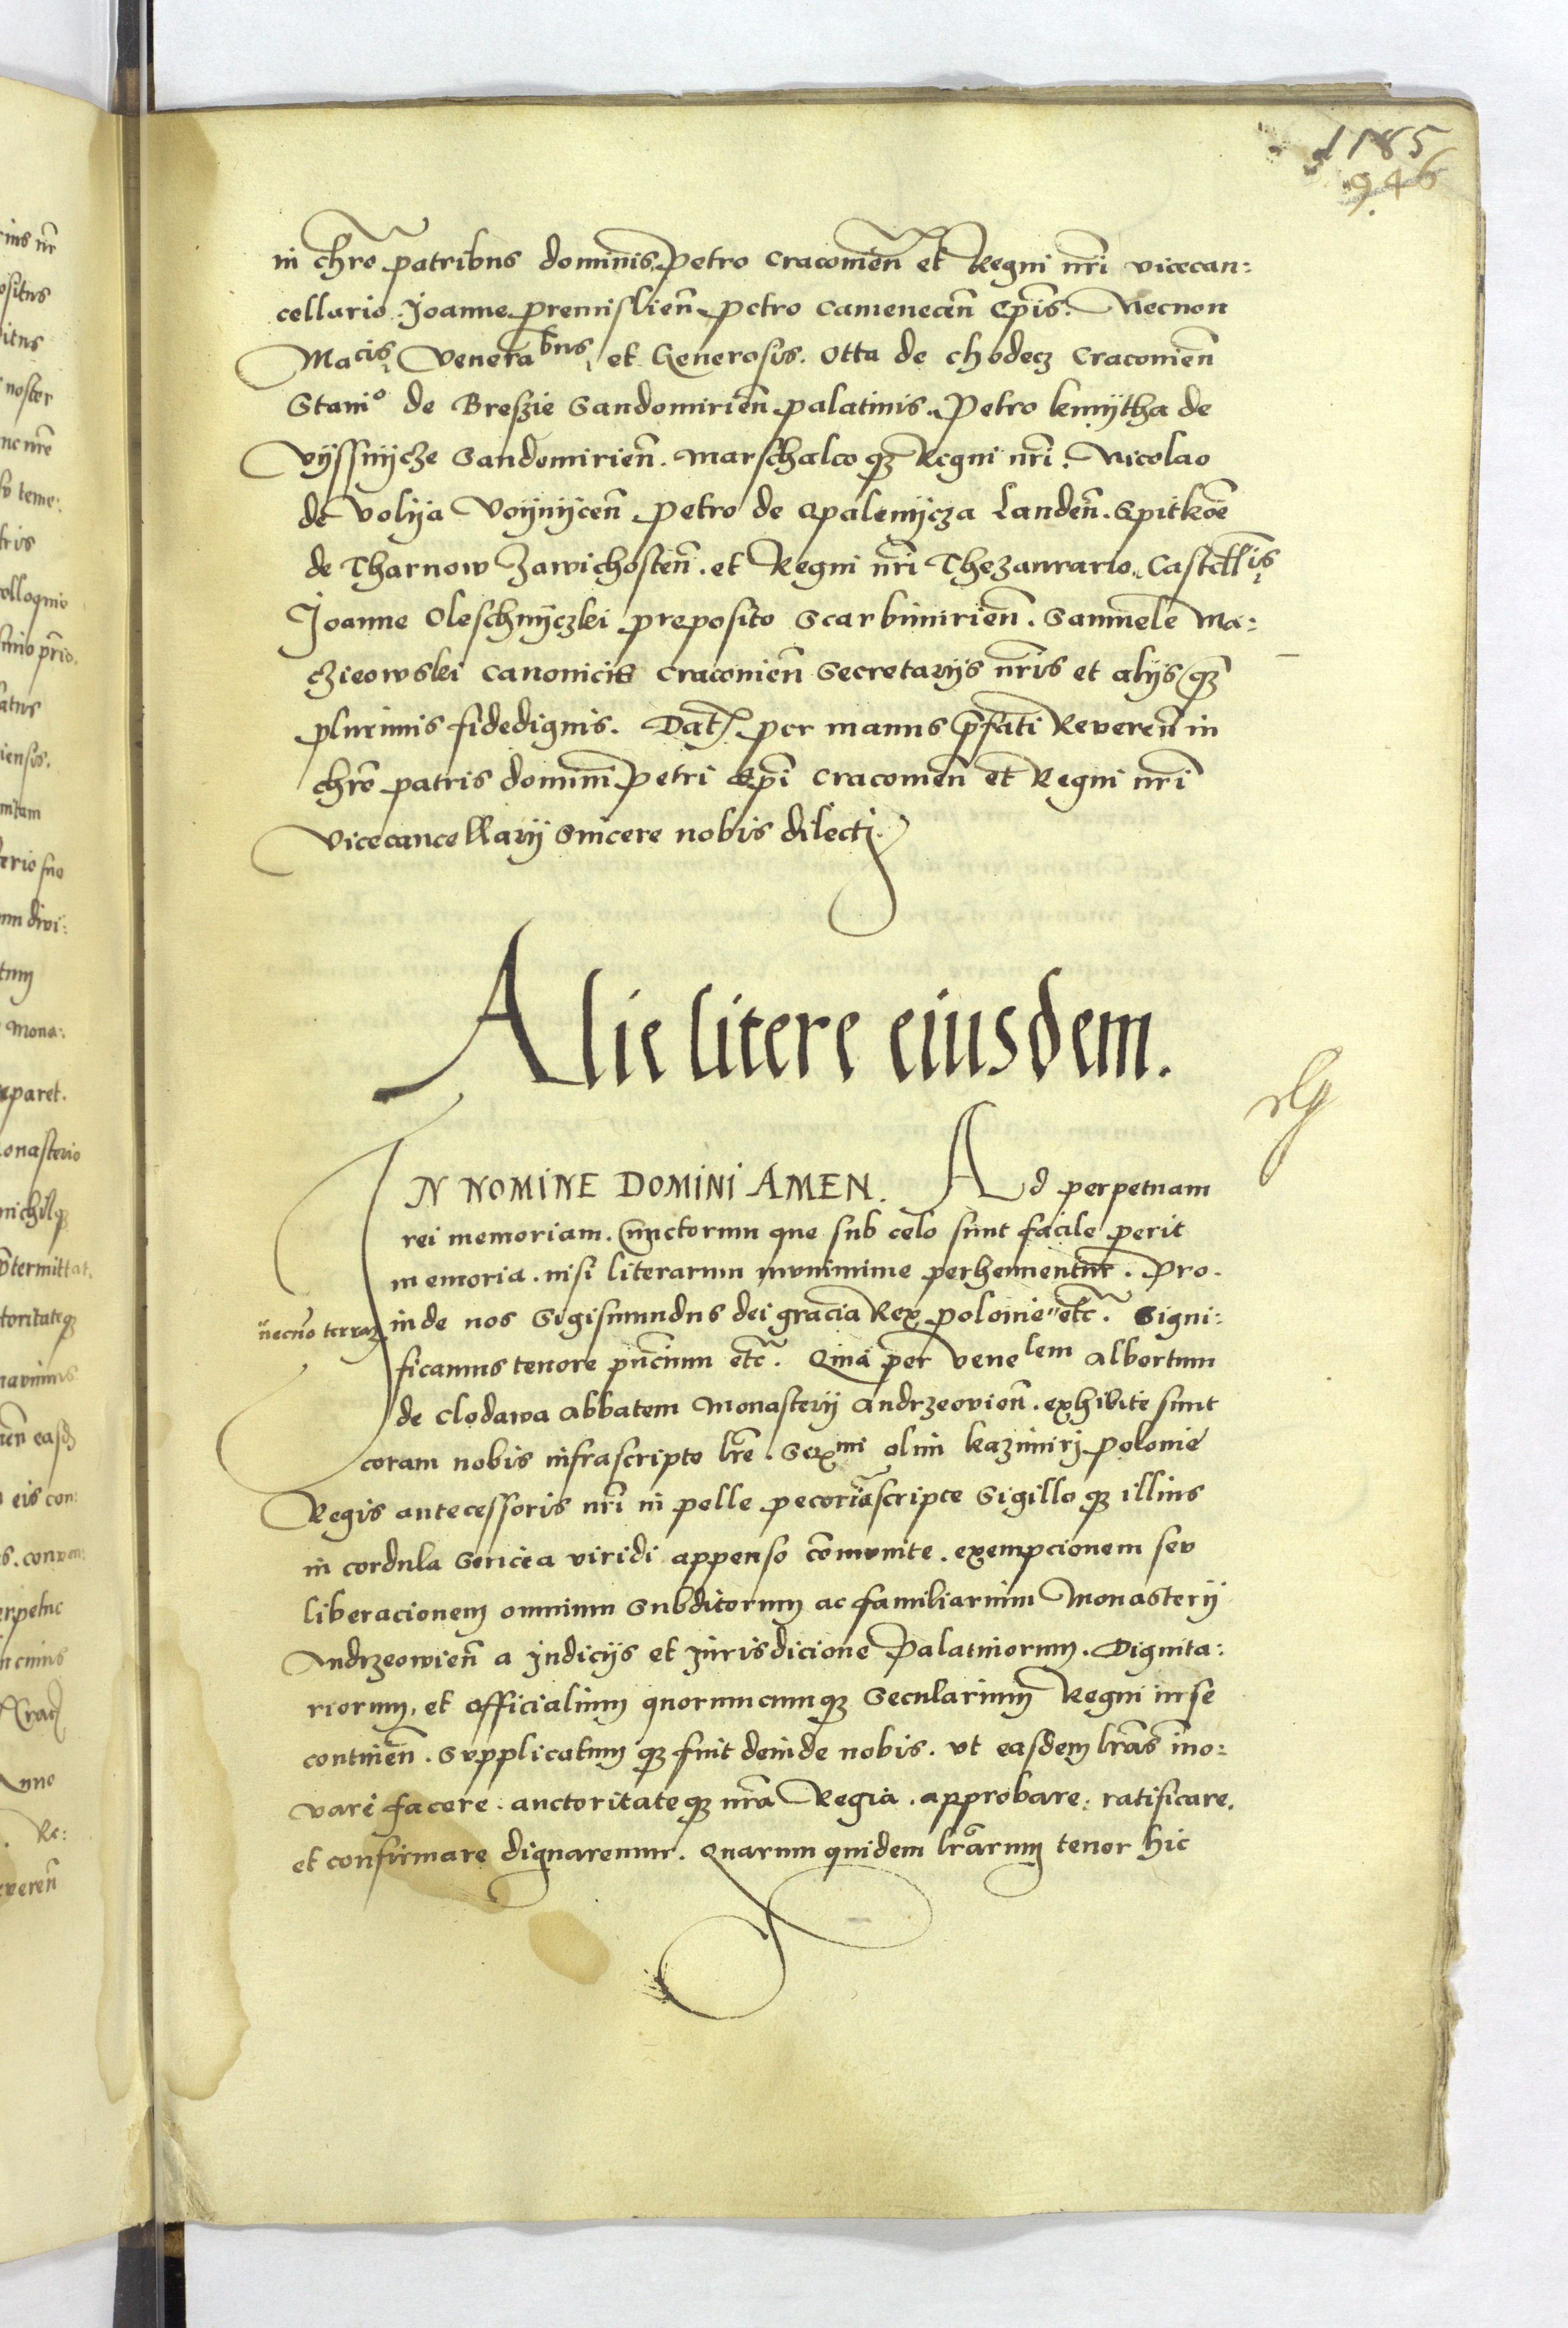 1185
946
in chro patribus dominis Petro Cracovien et Regni nri vicecan:
cellario. Joanne premislien petro Camenecen Epis. Necnon
Macis Venerabus et Generosis. Otta de chodecz Cracovien
Stanio de Breszie Sandomirien palatinis. Petro kmytha de
vyssnycze Sandomirien. Marschalco q3 Regni nri. Nicolao
de volya voynycen petro de Opalenycza Landen. Spitkoe
de Tharnow Zawichosten. et Regni nri Thezaurario. Castellis
Joanne Oleschnyczki preposito Scarbimirien. Samuele Ma:
czieowski Canonicis Cracovien Secretarijs nris et alijs q3
plurimis fidedignis. Dat per manus pfati Reveren in
chro patris domini Petri Epi Cracovien et Regni nri
vicecancellarij Sincere nobis dilecti.
Alie litere eiusdem.
IN NOMINE DOMINI AMEN. Ad perpetuam
rei memoriam. Cunctorum que sub celo sunt facile perit
memoria. nisi literarum munimine perhennentur. Pro.
necno terraꝝ
inde nos Sigismundus dei gracia Rex polonie etc. Signi:
ficamus tenore pncium etc. Quia per venelem Albertum
de Clodawa Abbatem Monasterij Andrzeovien. exhibite sunt
coram nobis infrascripte lre. Serxmi olim kazimirj Polonie
Regis antecessoris nri in pelle pecorina scripte Sigillo q3 illius
in cordula Sericea viridi appenso comunite. exempcionem seu
liberacionem omnium Subditorum ac familiarium Monasterij
Andrzeowien a Judicijs et Jurisdicione Palatinorum. Dignita:
riorum, et Officialium quorumcumq3 Secularium Regni in se
continen. Supplicatum q3 fuit deinde nobis. ut easdem lras inno:
vari facere. auctoritate q3 nra Regia. approbare: ratificare.
et confirmare dignaremur. Quarum quidem lrarum tenor hic